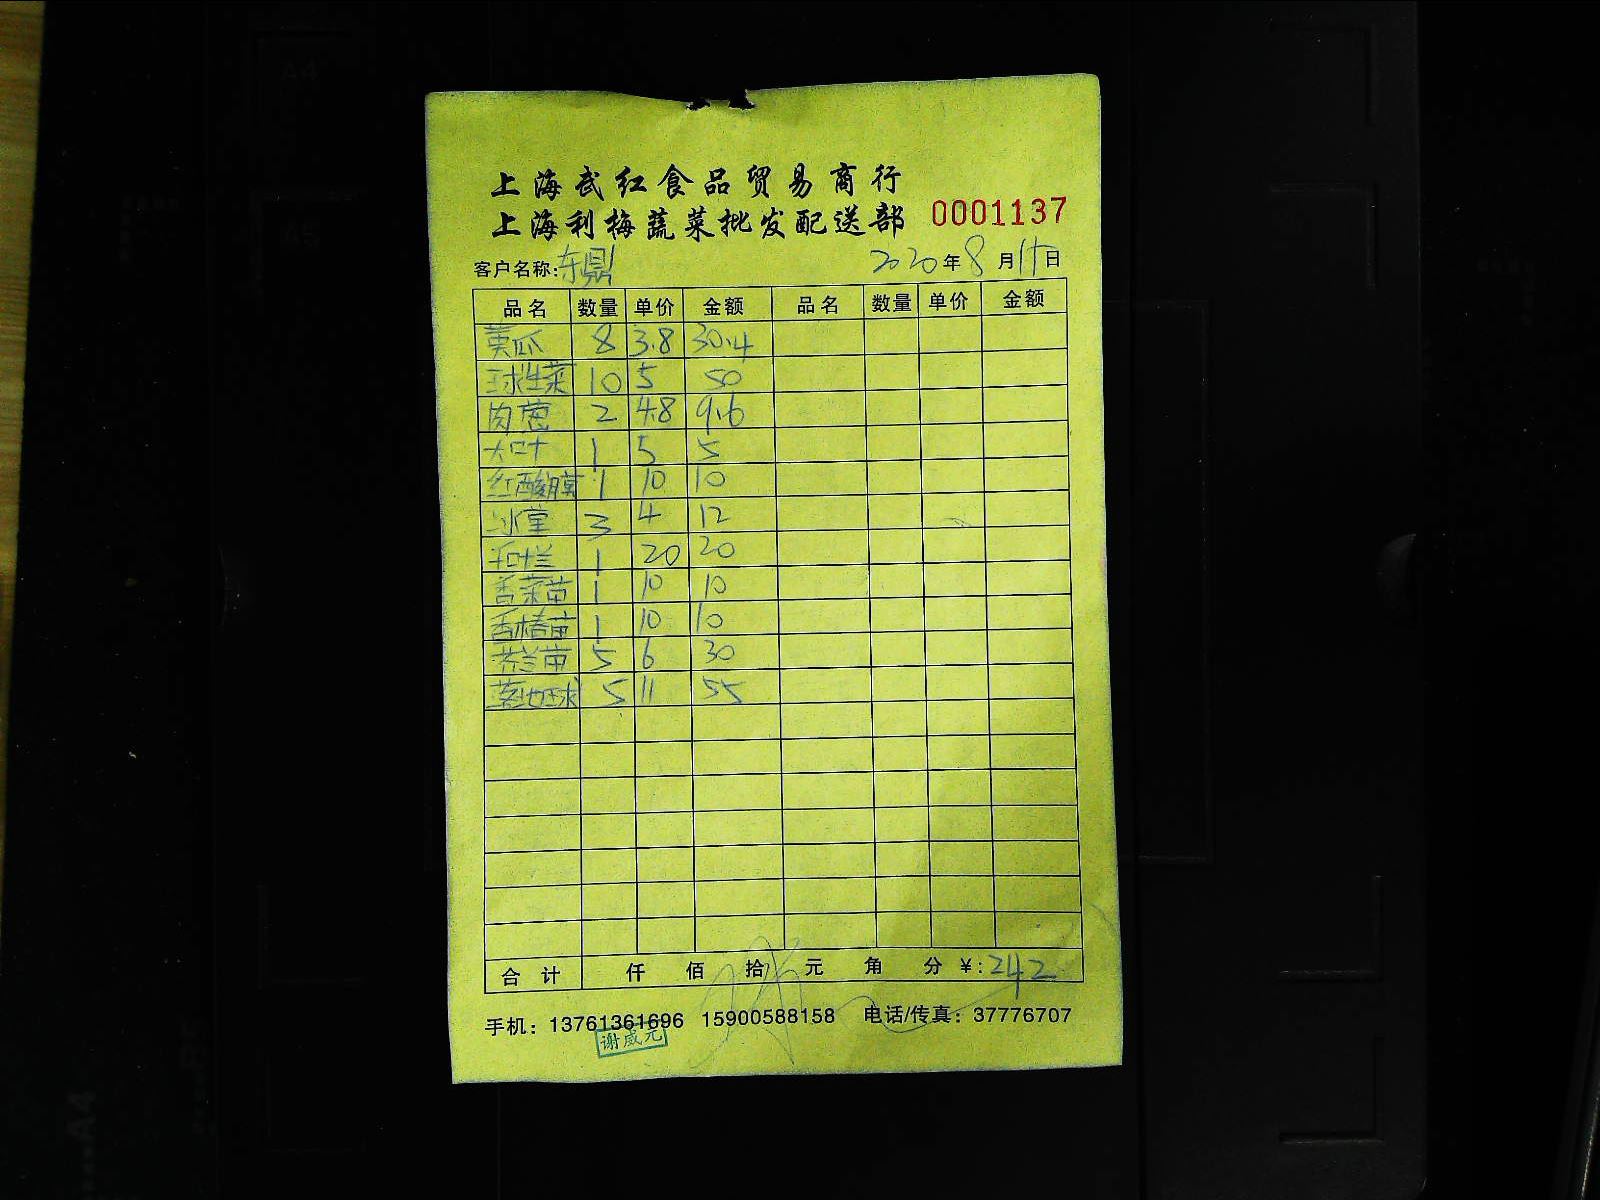 上海武红食品贸易商行
上海利梅蔬菜批发配送部 0001137
客户名称:东鼎 2020年8月11日
品名 数量 单价 金额 品名 数量 单价 金额
黄瓜 8 3.8 30.4
球生菜 10 5 50
肉葱 2 4.8 9.6
大叶 1 5 5
红酸膜 1 10 10
冰草 3 4 12
1 20 20
香菜苗 1 10 10
香椿苗 1 10 10
芥兰苗 5 6 30
5 11 55
合计 仟 佰 拾 元 角 分 ¥:242
手机：13761361696 15900588158 电话/传真：37776707
谢威元